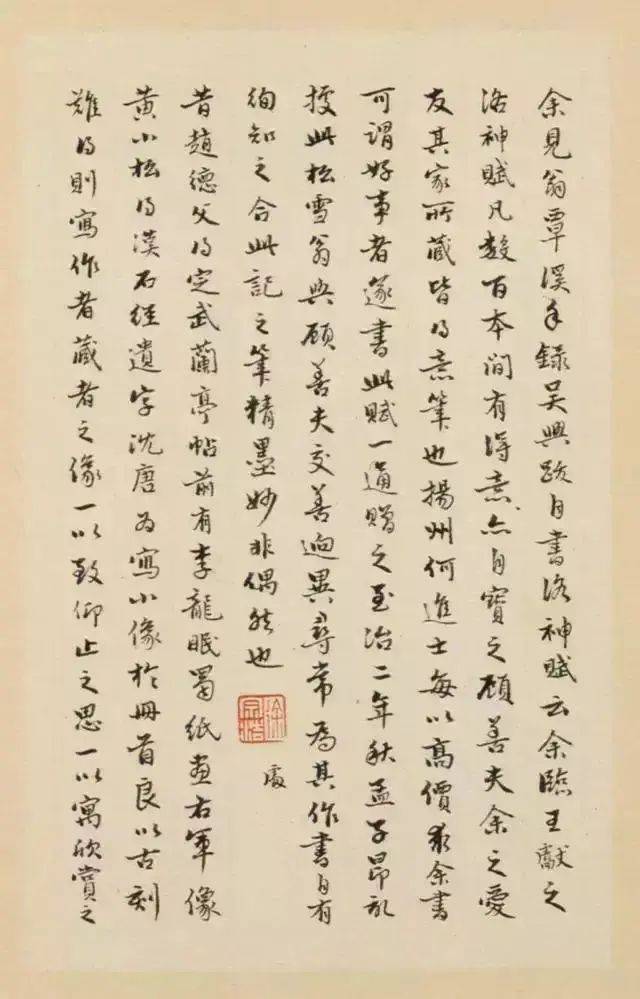 余見翁覃溪手錄吳興跋自書洛神賦云余臨王獻之
洛神賦凡數百本間有得意亦自寶之顧善夫余之愛
友其家所藏皆得意筆也揚州何進士每以高價求余書
可謂好事者遂書此賦一通贈之至治二年秋孟子昂記
據此松雪翁與顧善夫交善迥異尋常為其作書自有
徇知之合此記之筆精墨妙非偶然也
處
昔趙德父得定武蘭亭帖前有李龍眠蜀紙畫右軍像
黃小松得漢石經遺字沈唐為寫小像於冊首良以古刻
難得則寫作者藏者之像一以致仰止之思一以寓欣賞之